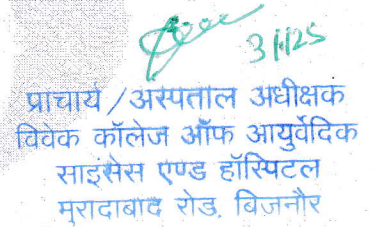 3/1/25
प्राचार्य/अस्पताल अधीक्षक
विवेक कॉलेज ऑफ आयुर्वेदिक
साइंसेस एण्ड हॉस्पिटल
मुरादाबाद रोड, बिजनौर